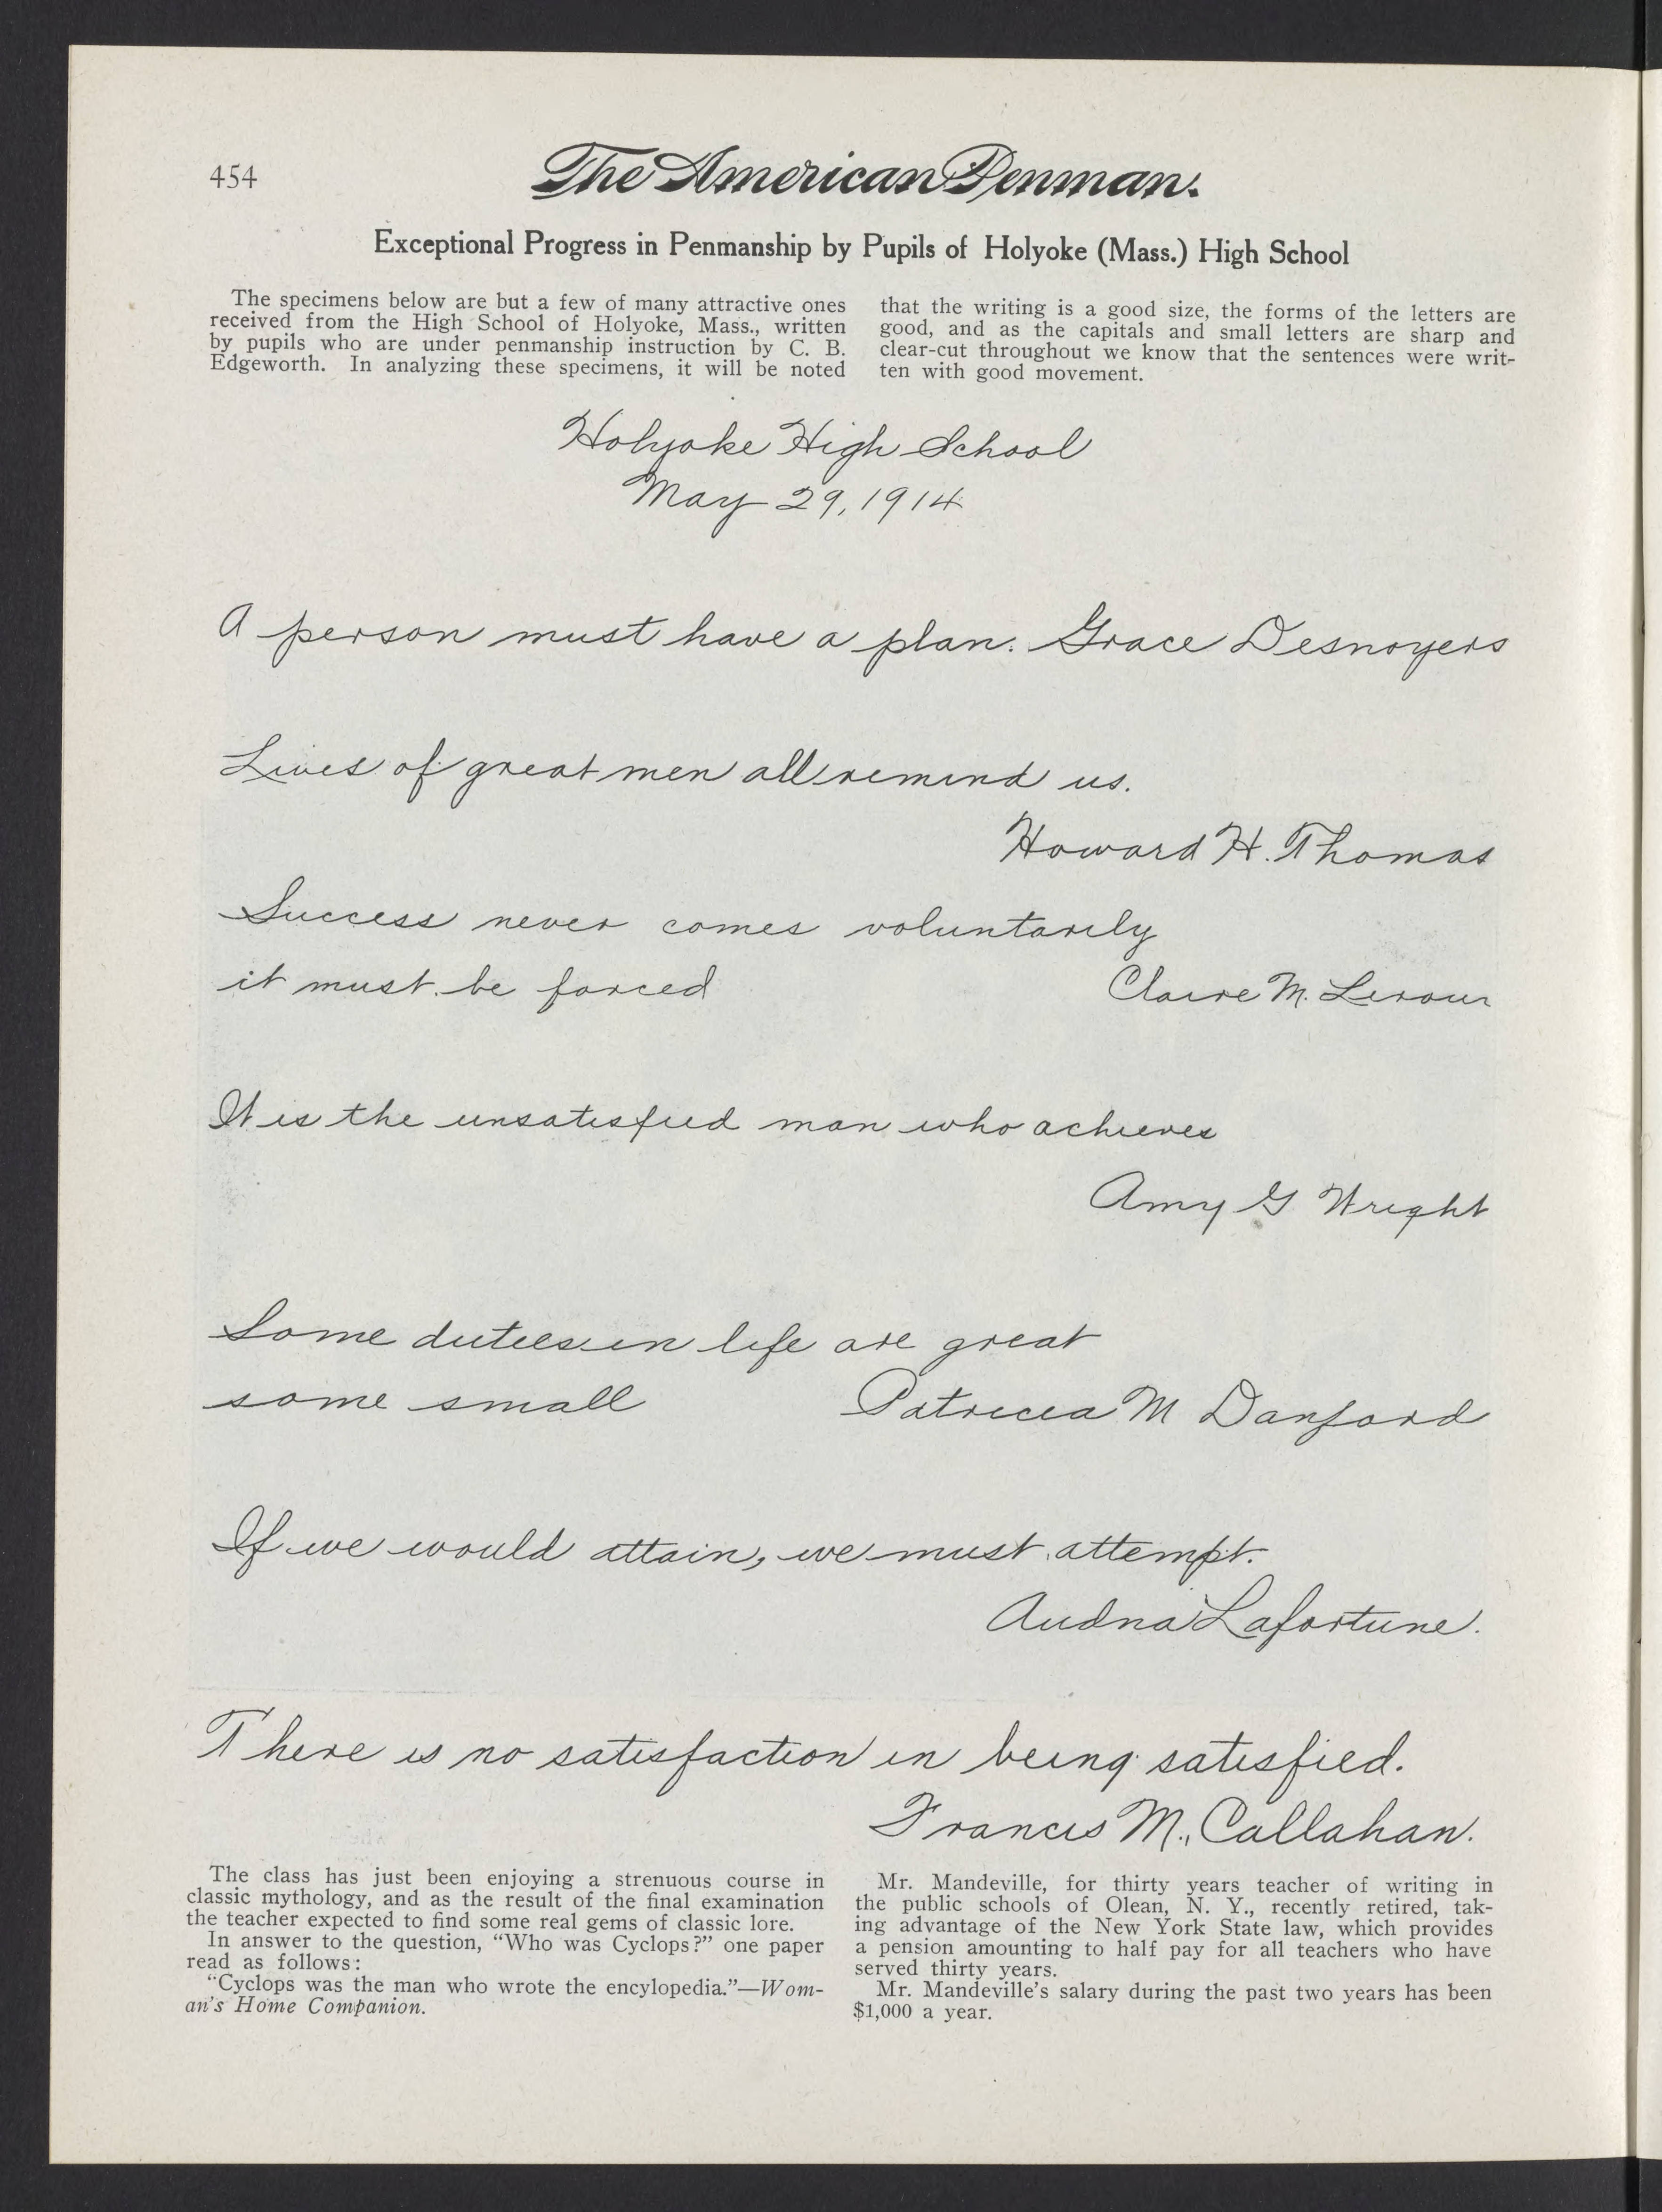 454
The American Penman.
Exceptional Progress in Penmanship by Pupils of Holyoke (Mass.) High School
The specimens below are but a few of many attractive ones
received from the High School of Holyoke, Mass., written
by pupils who are under penmanship instruction by C. B.
Edgeworth. In analyzing these specimens, it will be noted
that the writing is a good size, the forms of the letters are
good, and as the capitals and small letters are sharp and
clear-cut throughout we know that the sentences were writ-
ten with good movement.
Holyoke High School
May 29, 1914
A person must have a plan. Grace Desnoyers
Lives of great men all remind us.
Howard H. Thomas
Success never comes voluntarily
it must be forced Claire M. Leroux
It is the unsatisfied man who achieves
Amy G Wright
Some duties in life are great
some small Patricia M Danford
If we would attain, we must attempt.
Audna Lafortune.
There is no satisfaction in being satisfied.
Francis M. Callahan.
The class has just been enjoying a strenuous course in
classic mythology, and as the result of the final examination
the teacher expected to find some real gems of classic lore.
In answer to the question, "Who was Cyclops?" one paper
read as follows:
"Cyclops was the man who wrote the encylopedia."—Wom-
an's Home Companion.
Mr. Mandeville, for thirty years teacher of writing in
the public schools of Olean, N. Y., recently retired, tak-
ing advantage of the New York State law, which provides
a pension amounting to half pay for all teachers who have
served thirty years.
Mr. Mandeville's salary during the past two years has been
$1,000 a year.